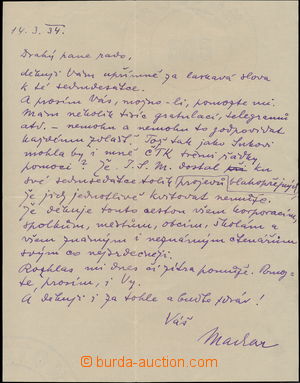 14. 3. XII. 34.
Drahý pane rado,
děkuji Vám upřímně za laskavá slova
k té sedmdesátce.
A prosím Vás, možno-li, pomozte mi.
Mám několik tisíc gratulací, telegramů
atd. – nemohu a nemohu to zodpovídat
každému zvlášť. Tož tak jako Sukovi
mohla by i mně ČTK třemi řádky
pomoci: Že J. S. M. dostal ku
své sedmdesátce tolik projevů blahopřejných,
že jich jednotlivě kvitovat nemůže.
Že děkuje touto cestou všem korporacím,
spolkům, městům, obcím, školám a
všem známým i neznámým čtenářům
svým co nejsrdečněji.
Rozhlas mi dnes či zítra pomůže. Pomoz-
te, prosím, i Vy.
A děkuji i za tohle a buďte zdráv!
Váš
Machar
burda-auction.com